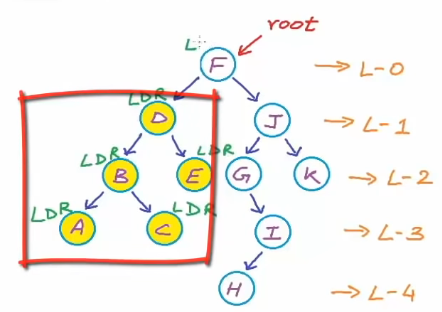 root
L
F → L-0
LDR
D J → L-1
LDR LDR
B E G K → L-2
LDR LDR
A C I → L-3
H → L-4